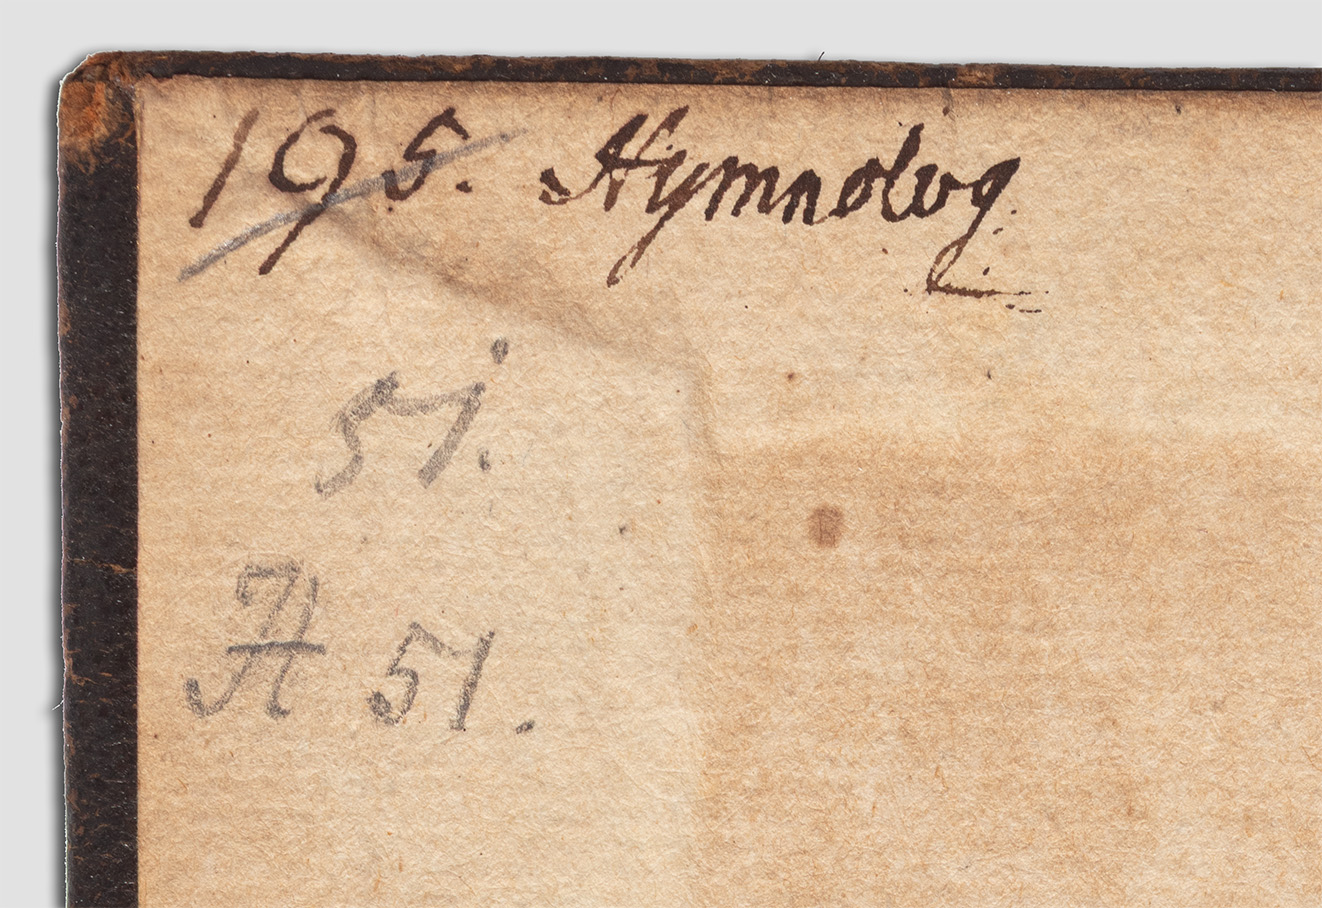 195. Hymnolog.
51.
A 51.